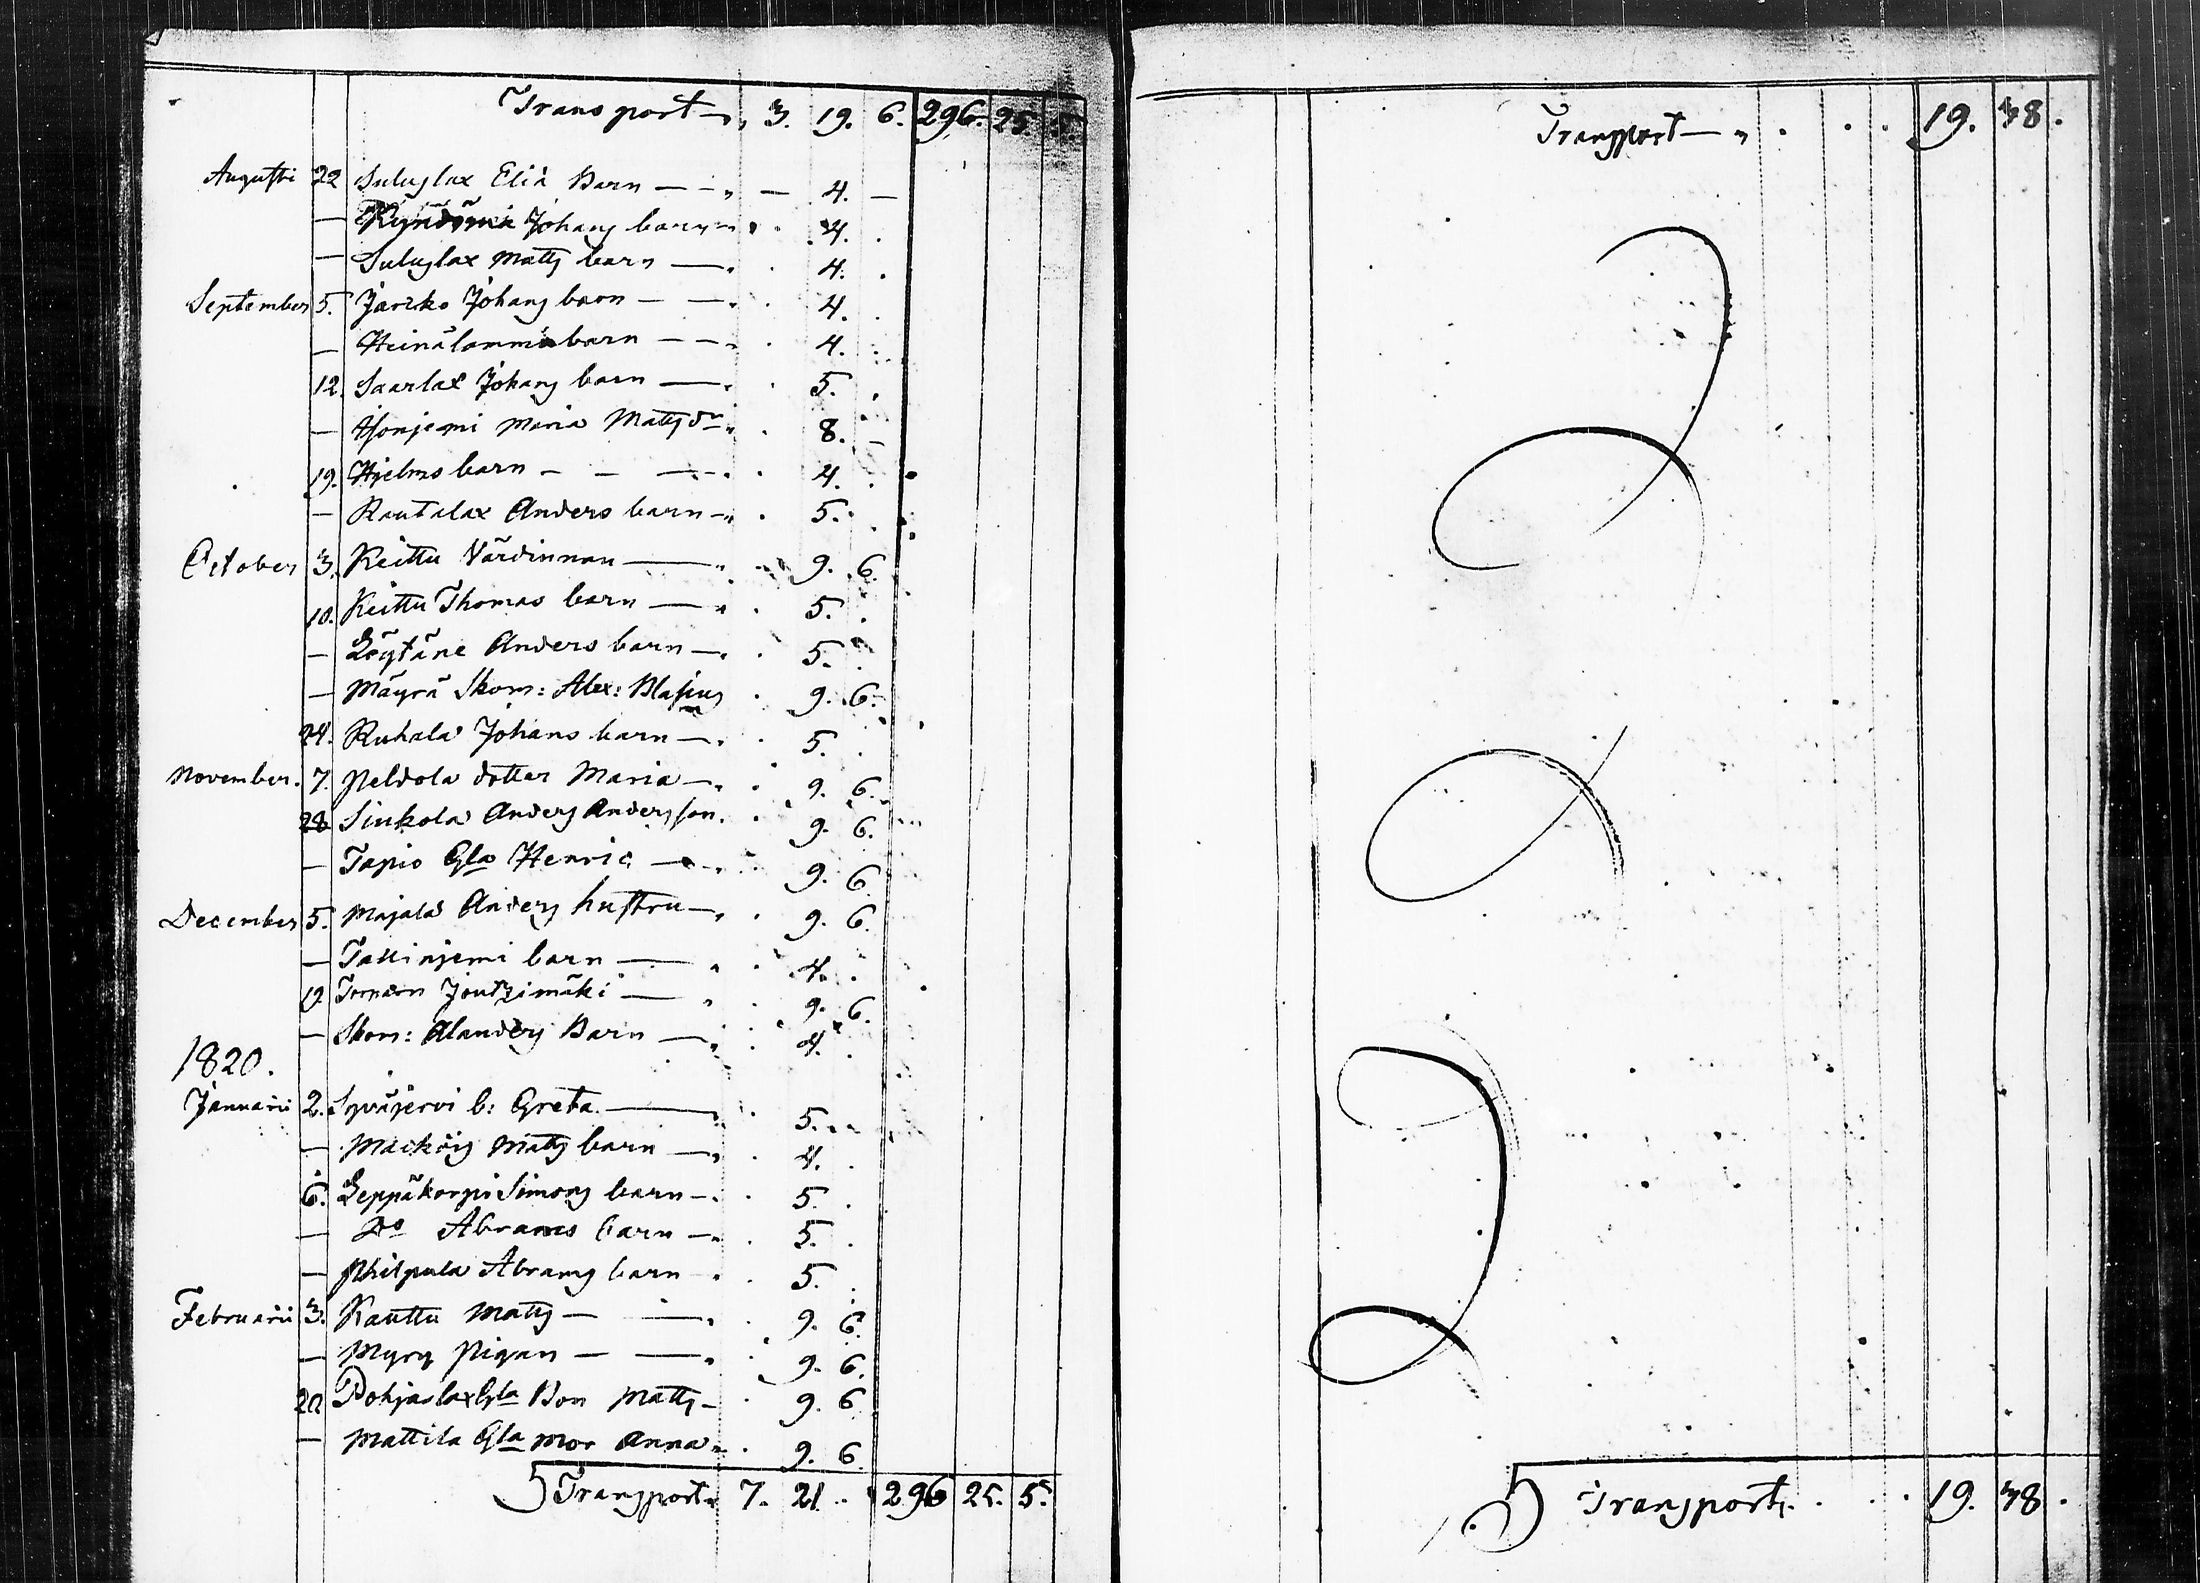 Transport 3. 19. 6. 296. 25. 5.
Augusti 22 Suluslax Eliæ Barn — 4. —
— Johans barn 4.
— Suluslax Matts barn — 4.
September 5. Jaricko Johans barn — 4.
— Heinälammi barn — 4.
12. Saarlax Johans barn — 5.
— Honjemi Maria Mattsdr 8. —
19. Hjelms barn — 4.
— Rautalax Anders barn 5.
October 3. Keittu Värdinnan — 9. 6.
10. Keittu Thomas barn — 5.
— Löytäne Anders barn — 5.
— Mäyrä Skom: Alex: Blasius 9. 6.
24. Ruhala Johans barn — 5.
November. 7. Peldola dotter Maria — 9. 6.
28 Sinkola Anders Andersson. 9. 6.
— Tapio Gla Henric — 9. 6.
December 5. Majala Anders hustru — 9. 6.
— barn — 4.
19 Joutzimäki — 9. 6.
— Skom: Alanders Barn — 4.
1820.
Januarii 2. Syväjervi b: Greta — 5.
— Matts barn — 4.
6. Leppäkorpi Simons barn — 5.
— Do Abrams barn — 5.
— Philpula Abrams barn 5.
Februarii 3. Kauttu Matts — 9. 6.
— Myry Pigan — 9. 6.
20 Pohjaslax Gla Bon Matts — 9. 6
— Mattila Gla mor Anna 9. 6.
Transport 7. 21. 296 25. 5.
Transport — 19. 38.
Transport 19. 38.